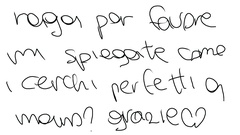 raga per favore
mi spiegate come
i cerchi perfetti a
mano? grazie♡